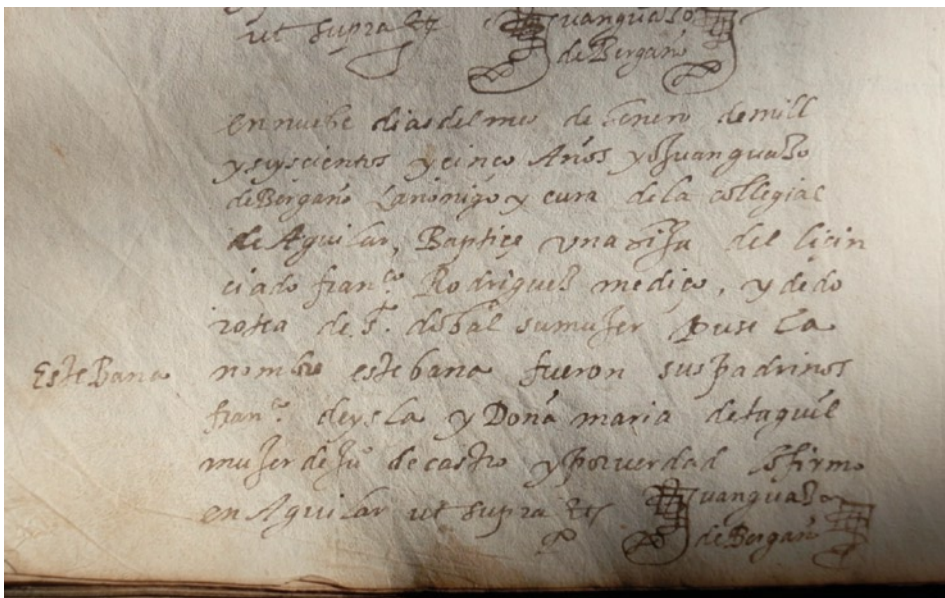 ut supra etc Juan gualo
de Bergaño
en nuebe dias del mes de henero de mill
y seyscientos y cinco Años yo Juan gualo
de Bergaño Canonigo y cura de la collegial
de Aguilar, Baptiçe una hija del licin
ciado franco. Rodriguez medico, y de do
rotea de su muger puse la
EsteBana nombre estebana fueron sus padrinos
franco. de ysla y Doña maria de
muger de Juo de castro y por verdad lo firmo
en Aguilar ut supra etc Juan gualo
de Bergaño